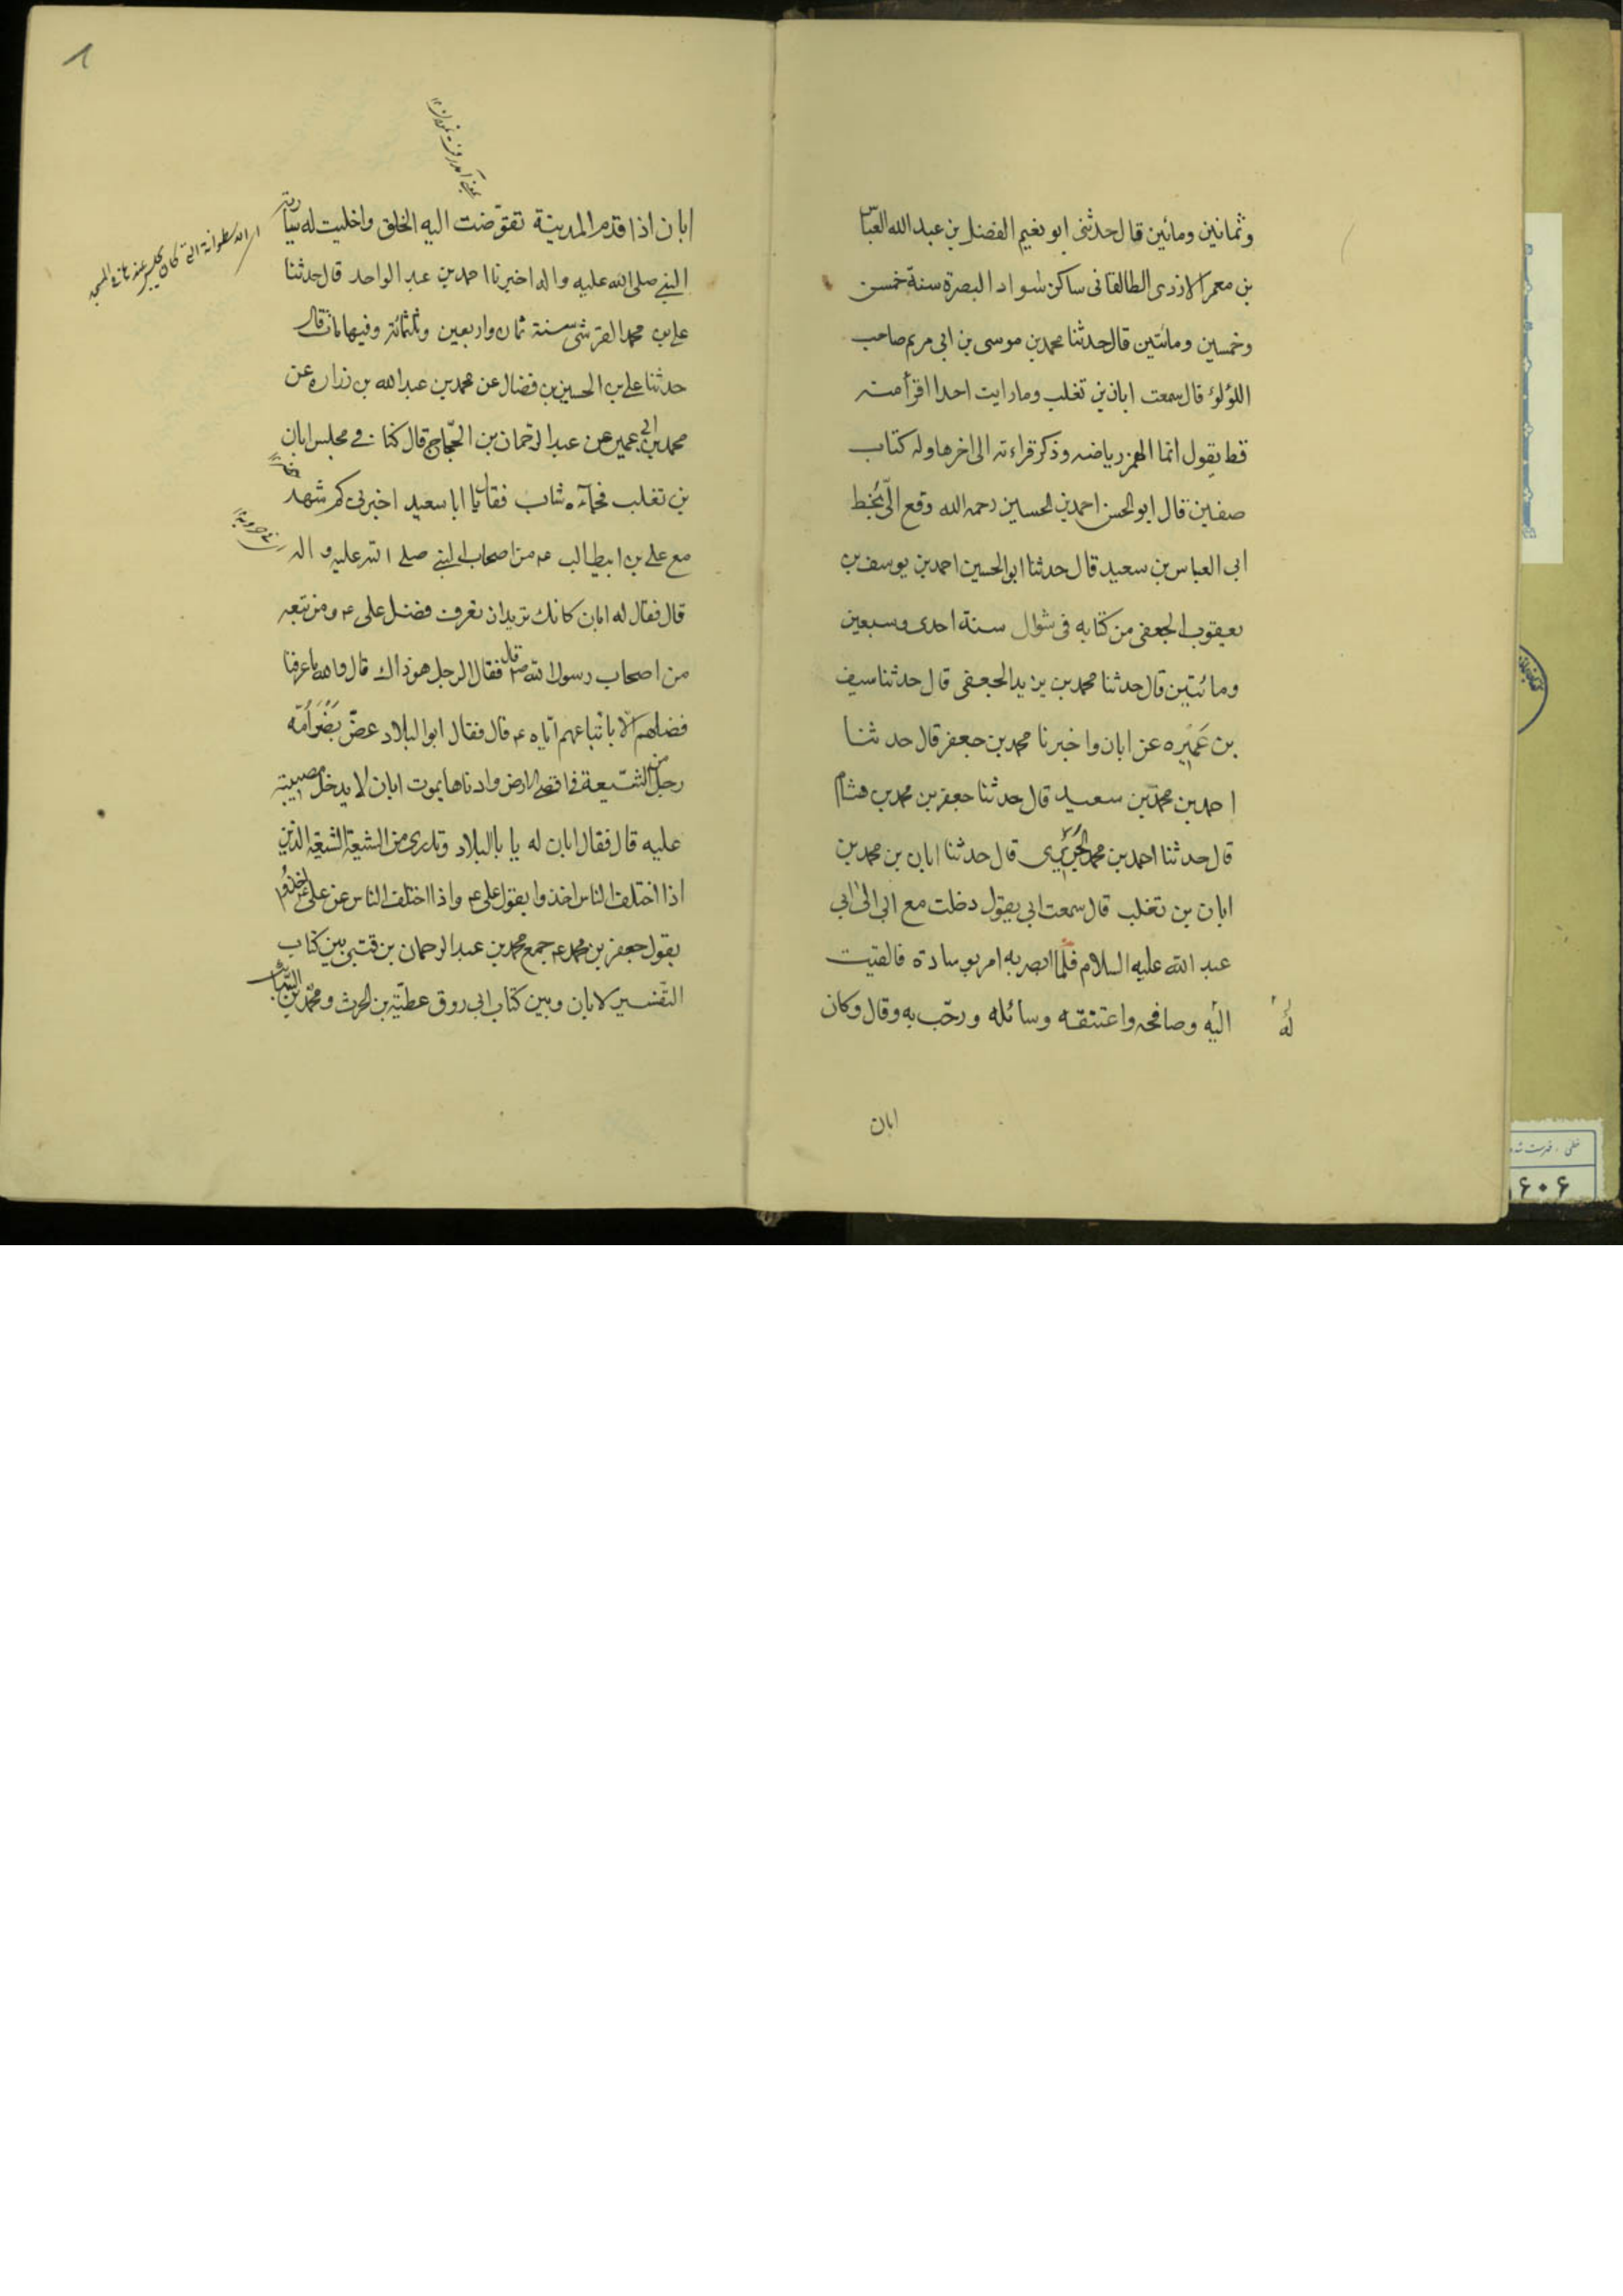 وثمانين ومائين قال حدثنى ابو نعيم الفضل بن عبد الله العبّاس
بن معمر الازدى الطالقانى ساكن سواد البصرة سنة خمس
وخمسين ومائتين قال حدثنا محمد بن موسى بن ابى مريم صاحب
اللؤلؤ قال سمعت ابان بن تغلب وما رايت احدا اقرأ منه
قط يقول انما الهمز رياضه وذكر قراءته الى اخرها وله كتاب
صفين قال ابو الحسن احمد بن الحسين رحمه الله وقع الّى بخط
ابى العباس بن سعيد قال حدثنا ابو الحسين احمد بن يوسف بن
يعقوب الجعفى من كتابه فى شوال سنة احدى وسبعين
ومائتين قال حدثنا محمد بن يزيد الجعفى قال حدثنا سيف
بن عَميره عن ابان واخبرنا محمد بن جعفر قال حدثنا
احمد بن محمّد بن سعيد قال حدثنا جعفر بن محمد بن هشام
قال حدثنا احمد بن محمد الحريرى قال حدثنا ابان بن محمد بن
ابان بن تغلب قال سمعت ابى يقول دخلت مع ابى الى ابى
عبد الله عليه السلام فلّما ابصر به امر بوسادة فالقيت
له
اليه وصافحه واعتنقه وسائله ورحّب به وقال وكان
ابان
٨
ابان اذا قدم المدينة تقوّضت اليه الخلق واخليت له سارية
النبى صلى الله عليه واله اخبرنا احمد بن عبد الواحد قال حدثنا
على بن محمد القرشى سنة ثمان واربعين وثلثمائة وفيها مات قال
حدثنا على بن الحسين بن فضال عن محمد بن عبد الله بن زراره عن
محمد بن ابى عمير عن عبد الرحمان بن الحجّاج قال كنا فى مجلس ابان
بن تغلب فجاءه شاب فقال يا ابا سعيد اخبرنى كم شهد
مع على بن ابيطالب ع من اصحاب النبى صلى الله عليه و اله
قال فقال له ابان كانك تريد ان تعرف فضل على ع ومن تبعه
من اصحاب رسول الله ص قال فقال الرجل هو ذاك قال والله ما عرفنا
فضلهم الّا باتباعهم ايّاه ع قال فقال ابو البلاد عضّ بَضْر اُمّه
رجل من الشّيعة فى اقصى الارض وادناها يموت ابان لا يدخل مصيبته
عليه قال فقال ابان له يا با البلاد وتدرى من الشيعة الشيعة الذين
اذا اختلف الناس اخذوا بقول على ع واذا اختلف الناس عن على ع اخذوا
بقول جعفر بن محمد ع جمع محمد بن عبد الرحمان بن قنتى بين كتاب
التّفسير لابان وبين كتاب ابى روق عطيّة بن الحرث ومحمّد بن السّائب
فهرست شده